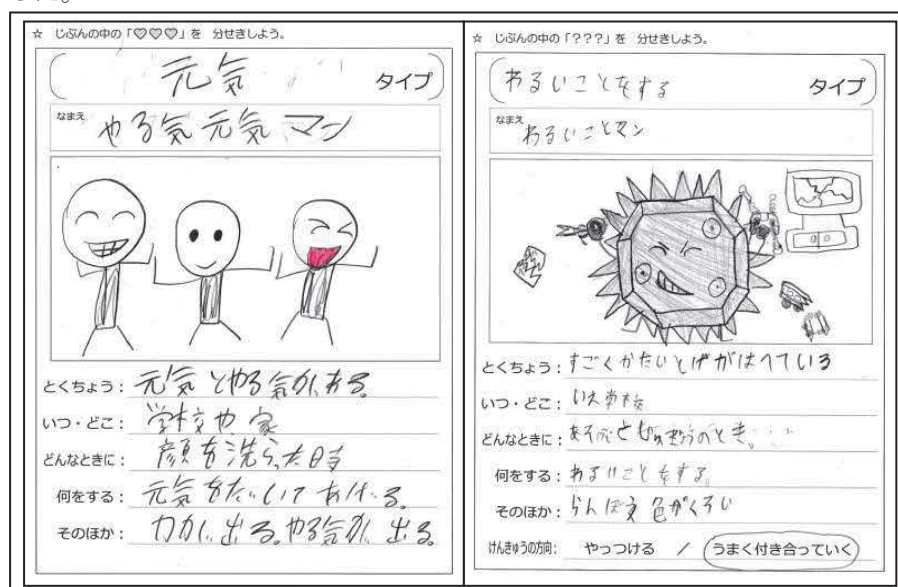 ☆ じぶんの中の「♡♡♡」を 分せきしよう。
元気 タイプ
なまえ やる気元気マン
とくちょう： 元気とやる気がある。
いつ・どこ： 学校や家
どんなときに： 顔を洗った時
何をする： 元気をだしてあげる。
そのほか： 力が出る。やる気が出る。
☆ じぶんの中の「？？？」を 分せきしよう。
わるいことをする タイプ
なまえ わるいことマン
とくちょう： すごくかたいとげがはえている
いつ・どこ： いえ学校
どんなときに： あそぶと のとき。
何をする： わるいことをする。
そのほか： らんぼう 色がくろい
けんきゅうの方向： やっつける ／ うまく付き合っていく